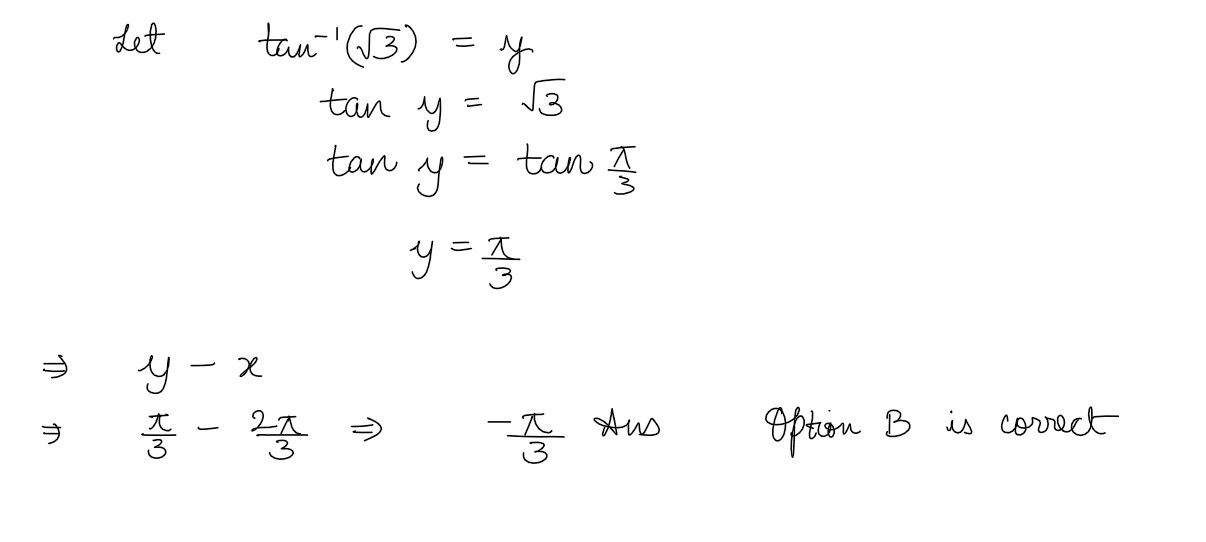 Let tan⁻¹(√3) = y
tan y = √3
tan y = tan π/3
y = π/3
⇒ y - x
⇒ π/3 - 2π/3 ⇒ -π/3 Ans Option B is correct